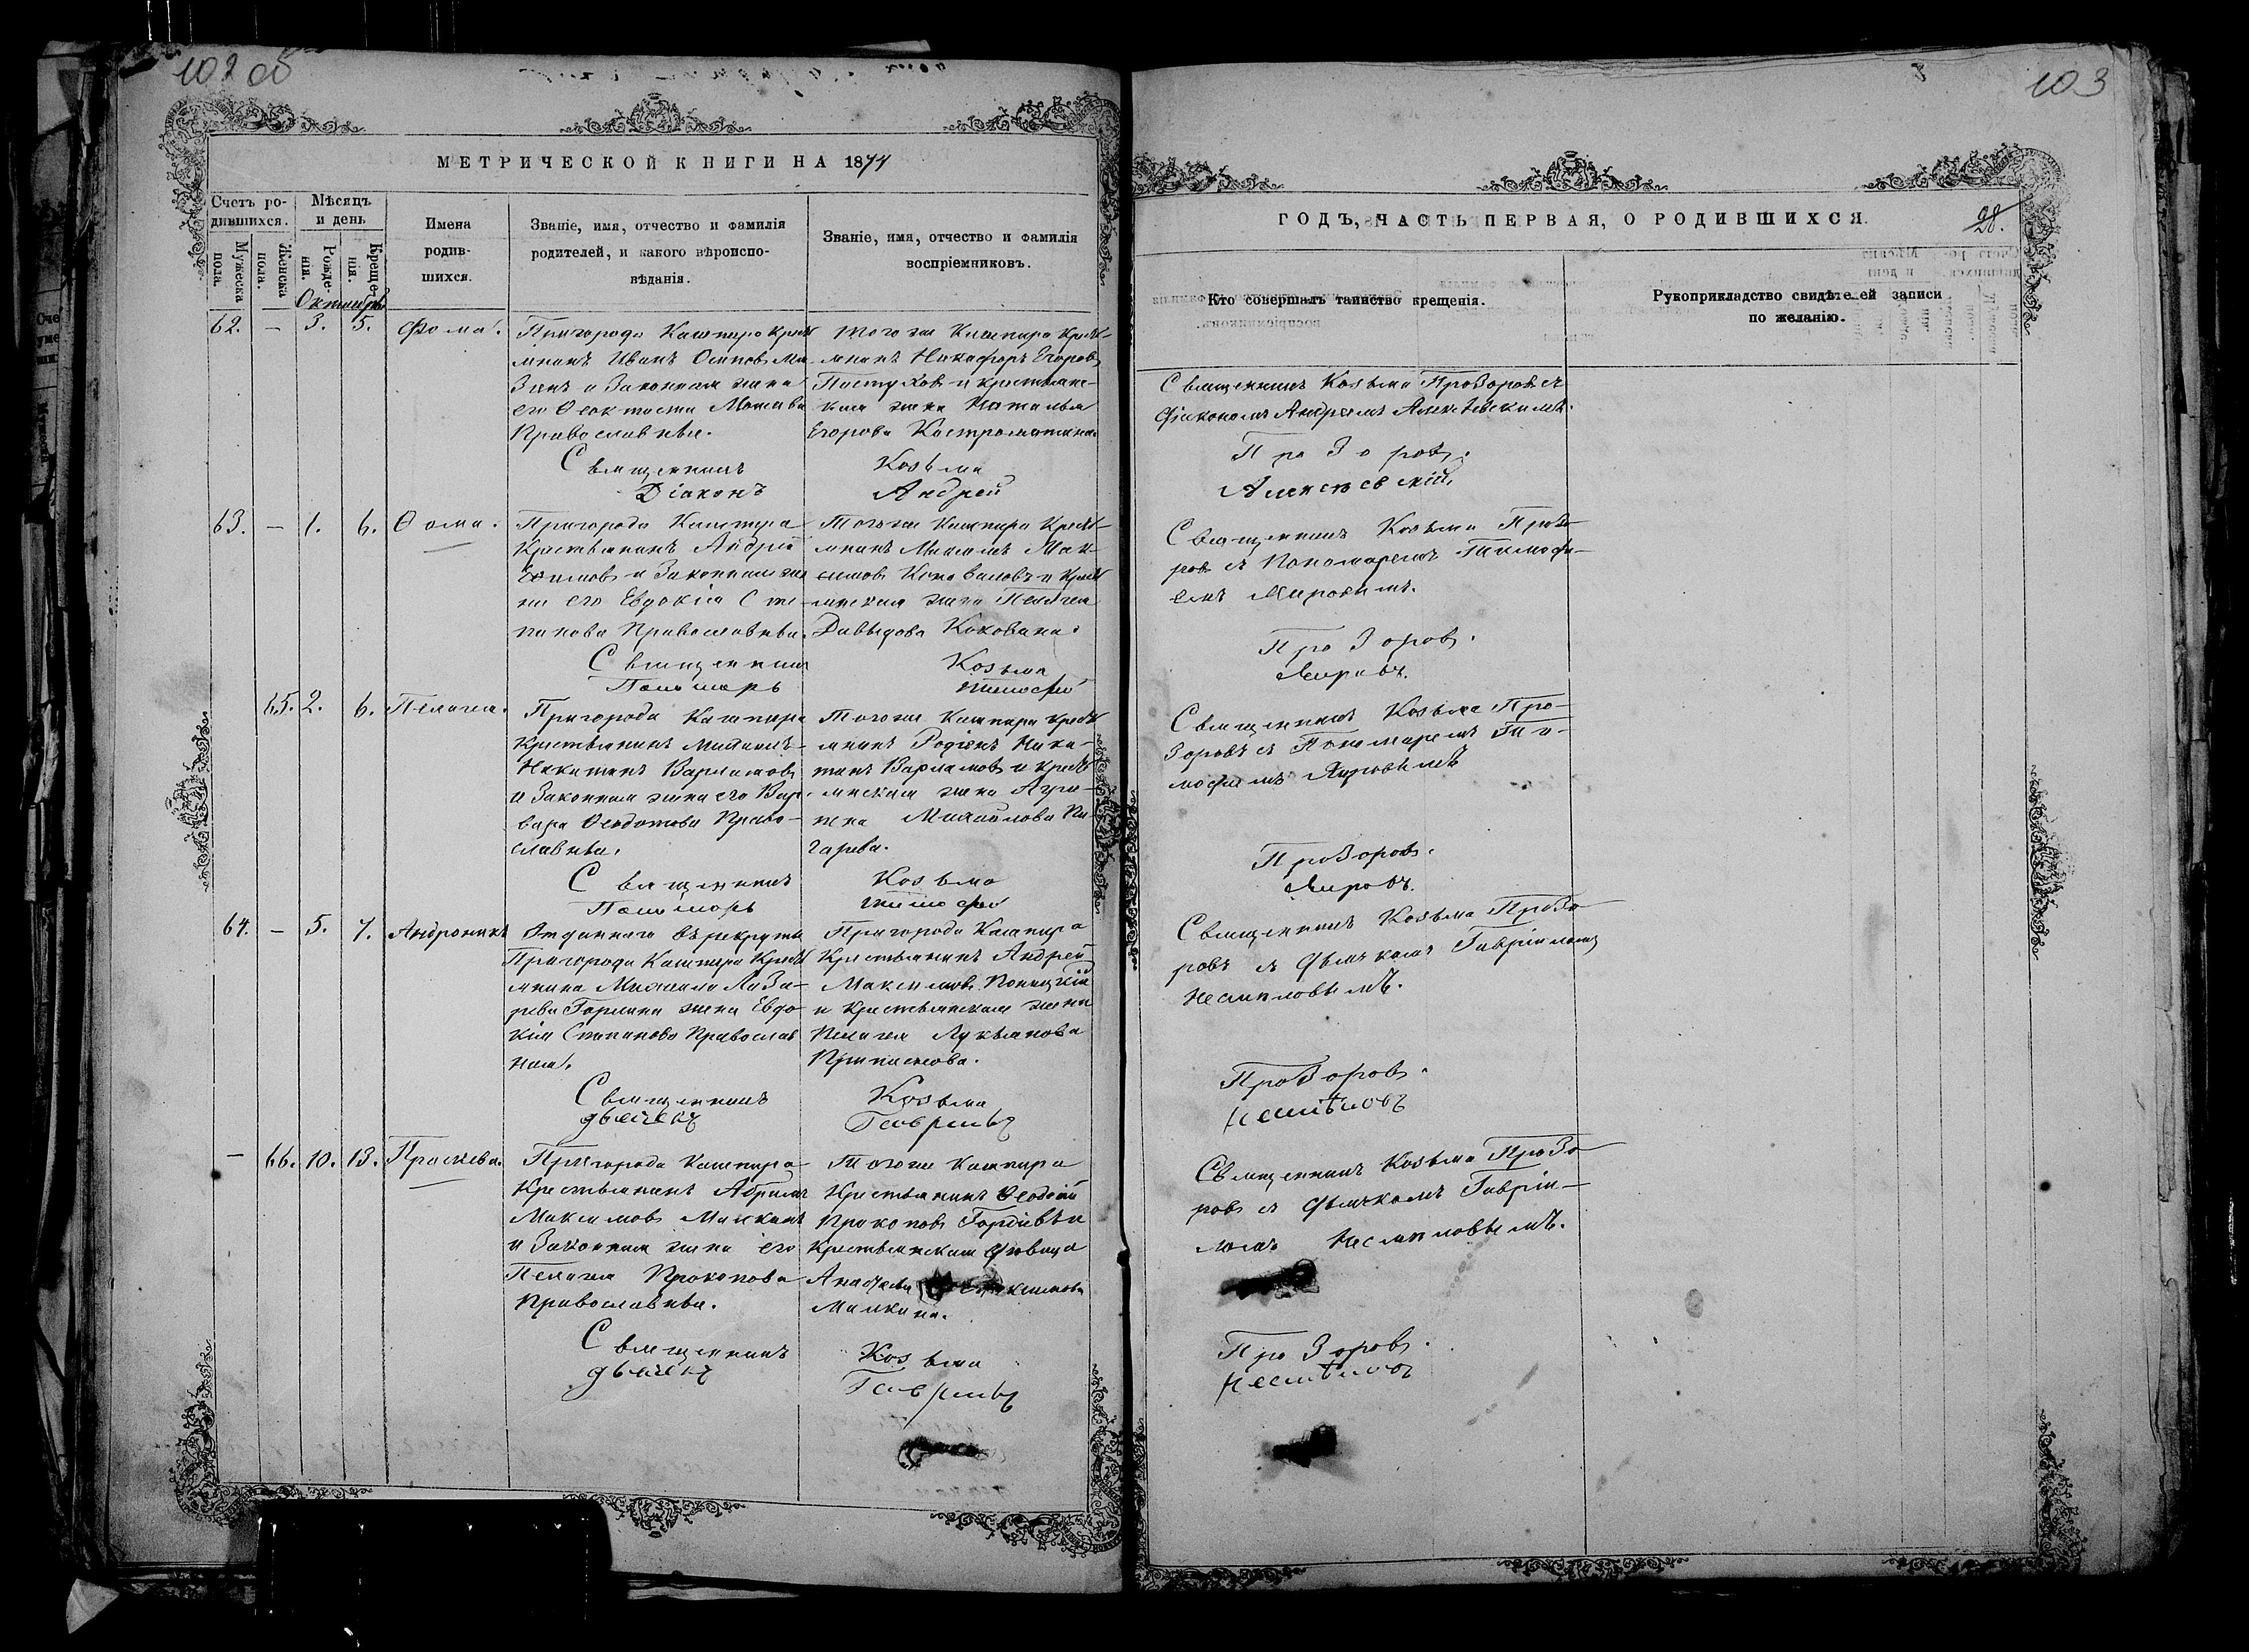 102 об
МЕТРИЧЕСКОЙ КНИГИ НА 1874
Счетъ ро-
дившихся.
Мужеска
пола.
Женска
пола.
Мѣсяцъ
и день
Рожде-
нія.
Креще-
нія.
Имена
родив-
шихся.
Званіе, имя, отчество и фамилія
родителей, и какого вѣроиспо-
вѣданія.
Званіе, имя, отчество и фамилія
воспріемниковъ.
Октябрь
62. — 3. 5. Фома.
Пригорода Кашпира Крестья
янинъ Иванъ Осиповъ
и Законная жена
его Ѳеоктиста
Православные.
Тогоже Кашпира Крестья-
янинъ Никифоръ Егоровъ
Пастуховъ и крестьянс-
кая жена Наталья
Егорова Костромитина.
Священникъ Козьма
Діаконъ Андрей
63. — 1. 6. Ѳома.
Пригорода Кашпира
Крестьянинъ Андрей
Ефимовъ и Законная же
на его Евдокія Сте-
панова Православные.
Тогоже Кашпира Крестья-
янинъ Михаилъ Мак-
симовъ Коноваловъ и Крестья
янская жена Пелагея
Давыдова
Священникъ Козьма
Пономарь Тимофей
65. 2. 6. Пелагея.
Пригорода Кашпира
Крестьянинъ
Никитинъ Варламовъ
и Законная жена его Вар-
вара Ѳеодотова Право-
славные.
Тогоже Кашпира Крестья
янинъ Родіонъ Ники-
тинъ Варламовъ и Крестья
янская жена Агри-
пена Михайлова Пи-
чарева.
Священникъ Козьма
Пономарь Тимофей
64. — 5. 7. Андроникъ
Отданнаго въ рекруты
Пригорода Кашпира Крестья
янина Михаила Лаза-
рева Горлина жена Евдо-
кія Степанова Православ
ная.
Пригорода Кашпира
Крестьянинъ Андрей
Максимовъ
и Крестьянская жена
Пелагея Лукьянова
Священникъ Козьма
Дьячекъ Гавріилъ
— 66. 10. 13. Праскева.
Пригорода Кашпира
Крестьянинъ Абрамъ
Максимовъ Малкинъ
и Законная жена его
Пелагея Прокопова
Православные.
Тогоже Кашпира
Крестьянинъ
Прокоповъ Гордѣевъ и
Крестьянская дѣвица
Малкина.
Священникъ Козьма
Дьячекъ Гавріилъ
103
ГОДЪ, ЧАСТЬ ПЕРВАЯ, О РОДИВШИХСЯ.
28.
Кто совершалъ таинство крещенія.
Рукоприкладство свидѣтелей записи
по желанію.
Священникъ Козьма Прозоровъ съ
Діакономъ Андреемъ Алексѣевскимъ.
Прозоровъ.
Алексѣевскій.
Священникъ Козьма Прозо-
ровъ съ Пономаремъ Тимофе-
емъ Мировымъ.
Прозоровъ.
Мировъ.
Священникъ Козьма Про-
зоровъ съ Пономаремъ Ти-
мофеемъ Мировымъ
Прозоровъ.
Мировъ.
Священникъ Козьма Прозо-
ровъ съ Дьячкомъ Гавріиломъ
Несмѣловымъ.
Прозоровъ.
Несмѣловъ
Священникъ Козьма Прозо-
ровъ съ Дьячкомъ Гавріи-
ломъ Несмѣловымъ.
Прозоровъ.
Несмѣловъ